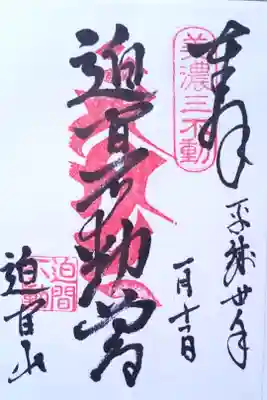 奉拝
美濃三不動
平成廿年
一月
迫間不動尊
迫間山
迫間
不動